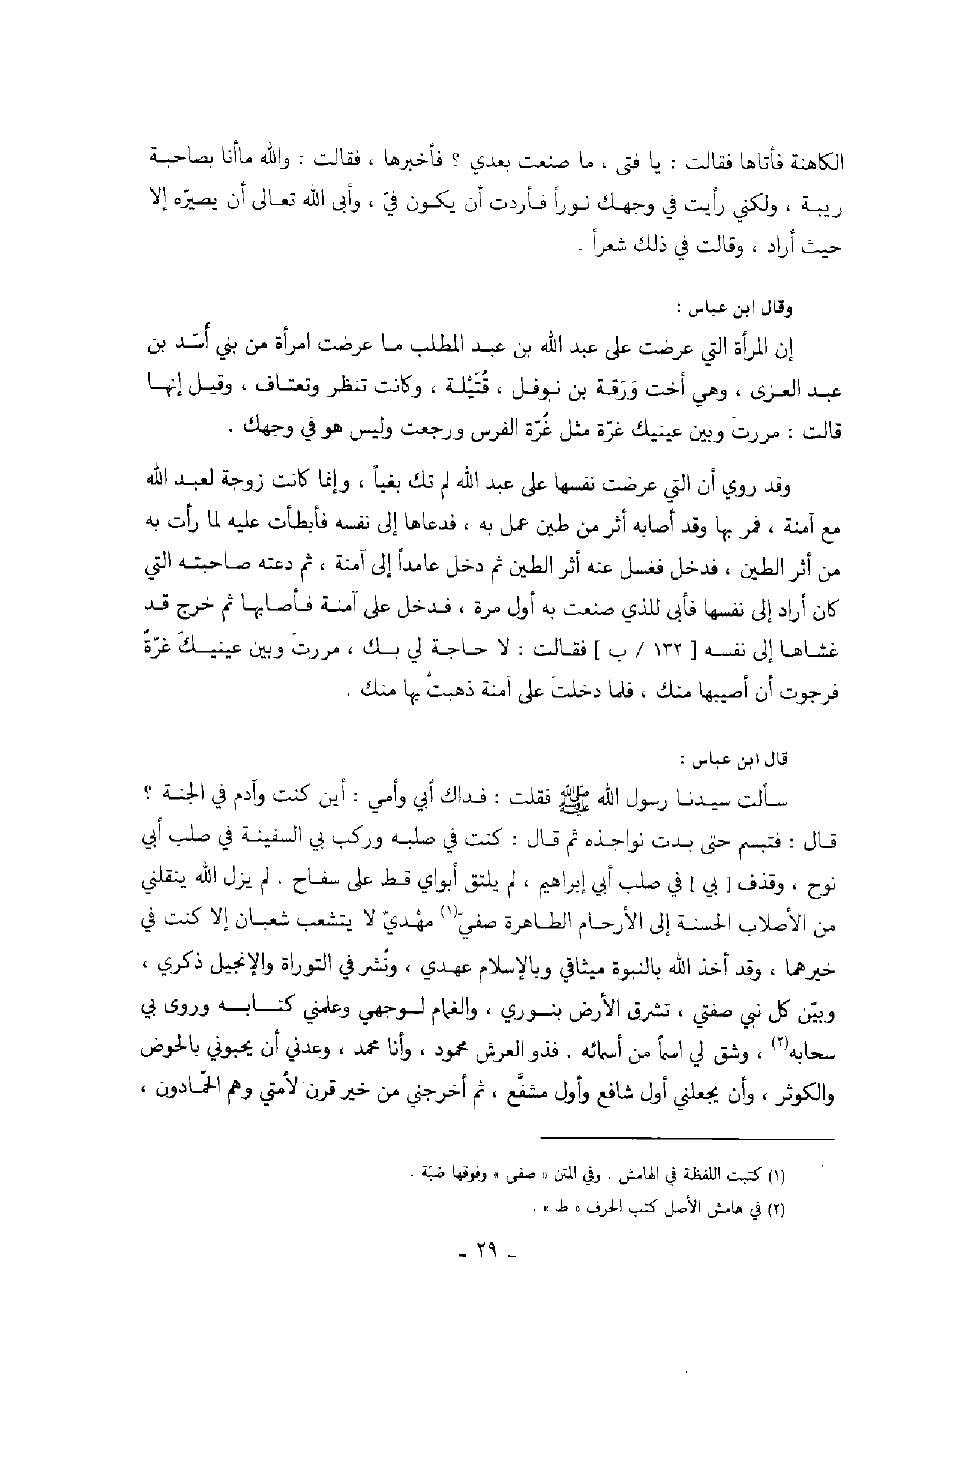 الكاهنة فأتاها فقالت : يا فتى ، ما صنعت بعدي ؟ فأخبرها ، فقالت : والله ماأنا بصاحبة
ريبة ، ولكني رأيت في وجهك نوراً فأردت أن يكون فيّ ، وأبى الله تعالى أن يصيّره إلا
حيث أراد ، وقالت في ذلك شعراً .
وقال ابن عباس :
إن المرأة التي عرضت على عبد الله بن عبد المطلب ما عرضت امرأة من بني أسَد بن
عبد العزى ، وهي أخت وَرَقة بن نوفل ، قُتَيْلة ، وكانت تنظر وتعتاف ، وقيل إنها
قالت : مررتَ وبين عينيك غرّة مثل غُرّة الفرس ورجعت وليس هو في وجهك .
وقد روي أن التي عرضت نفسها على عبد الله لم تك بغياً ، وإنما كانت زوجة لعبد الله
مع آمنة ، فمر بها وقد أصابه أثر من طين عمل به ، فدعاها إلى نفسه فأبطأت عليه لما رأت به
من أثر الطين ، فدخل فغسل عنه أثر الطين ثم دخل عامداً إلى آمنة ، ثم دعته صاحبته التي
كان أراد إلى نفسها فأبى للذي صنعت به أول مرة ، فدخل على آمنة فأصابها ثم خرج قد
غشاها إلى نفسه [ ١٣٢ / ب ] فقالت : لا حاجة لي بك ، مررتَ وبين عينيكَ غرّةٌ
فرجوت أن أصيبها منك ، فلما دخلتَ على آمنة ذهبتْ بها منك .
قال ابن عباس :
سألت سيدنا رسول الله ﷺ فقلت : فداك أبي وأمي : أين كنت وآدم في الجنة ؟
قال : فتبسم حتى بدت نواجذه ثم قال : كنت في صلبه وركب بي السفينة في صلب أبي
نوح ، وقذف [ بي ] في صلب أبي إبراهيم ، لم يلتق أبواي قط على سفاح . لم يزل الله ينقلني
من الأصلاب الحسنة إلى الأرحام الطاهرة صفيّ(١) مهْديّ لا يتشعب شعبان إلا كنت في
خيرهما ، وقد أخذ الله بالنبوة ميثاقي وبالإسلام عهدي ، ونُشر في التوراة والإنجيل ذكري ،
وبيّن كل نبي صفتي ، تشرق الأرض بنوري ، والغمام لوجهي وعلمني كتابه وروى بي
سحابه(٢) ، وشق لي اسماً من أسمائه . فذو العرش محمود ، وأنا محمد ، وعدني أن يحبوني بالحوض
والكوثر ، وأن يجعلني أول شافع وأول مشفّع ، ثم أخرجني من خير قرن لأمتي وهم الحمّادون ،
(١) كتبت اللفظة في الهامش . وفي المتن « صفى » وفوقها ضبّة .
(٢) في هامش الأصل كتب الحرف « ط » .
- ٢٩ -